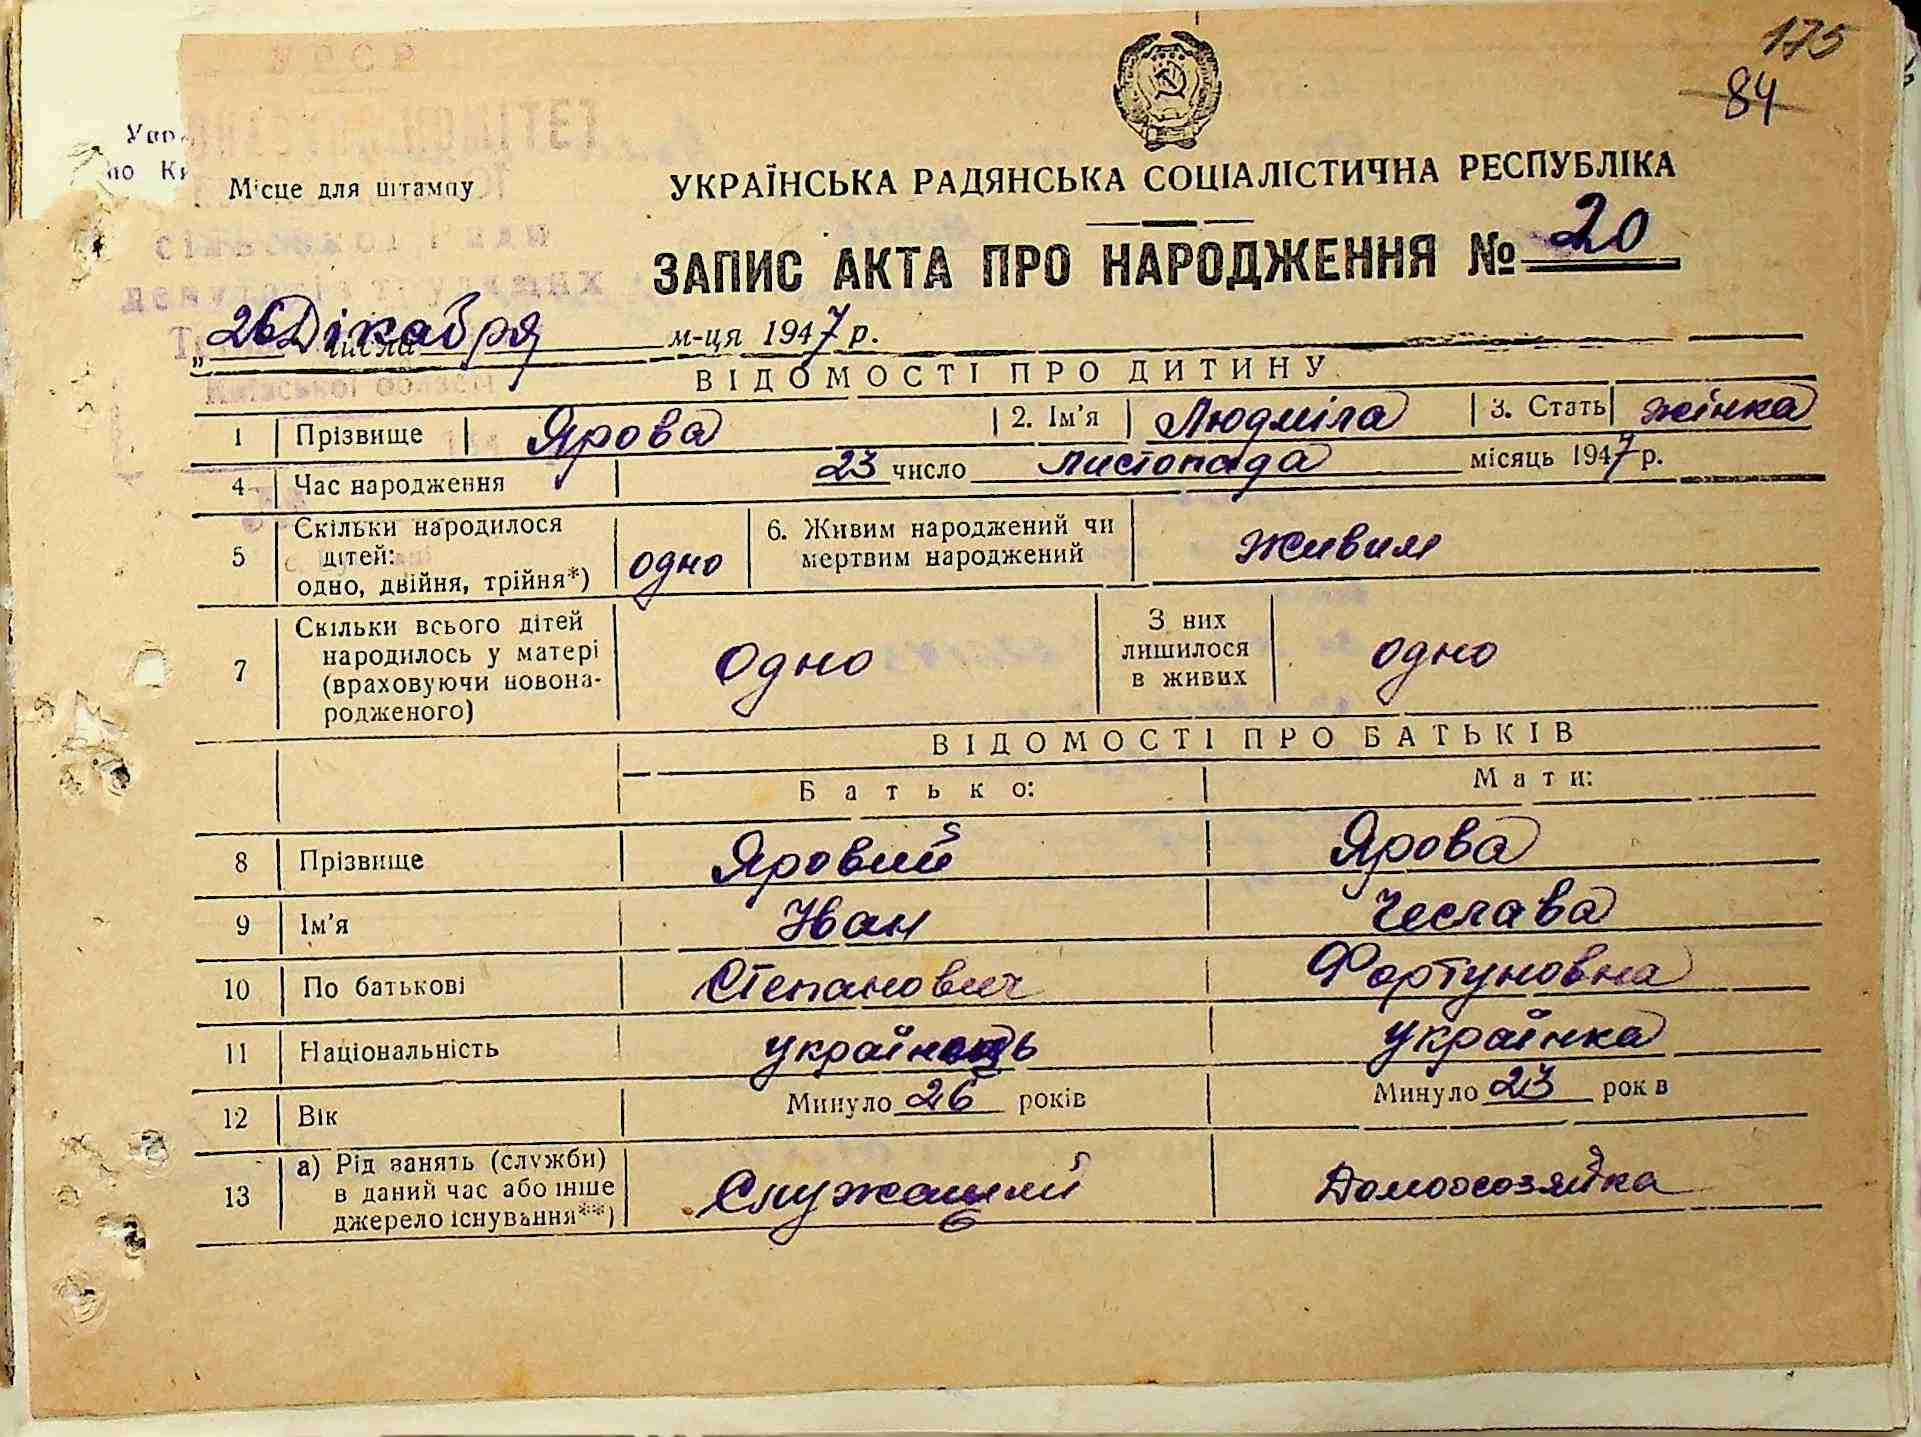 175
84
УРСР
КОМІТЕТ
Місце для штампу
УКРАЇНСЬКА РАДЯНСЬКА СОЦІАЛІСТИЧНА РЕСПУБЛІКА
ЗАПИС АКТА ПРО НАРОДЖЕННЯ № 20
сільської Ради
депутатів трудящих
„26 Дікабря числа м-ця 1947 р.
Київської області
ВІДОМОСТІ ПРО ДИТИНУ
1 Прізвище Ярова 2. Ім'я Людміла 3. Стать жінка
4 Час народження 23 число листопада місяць 1947 р.
5 Скільки народилося дітей: одно, двійня, трійня*) одно 6. Живим народжений чи мертвим народжений живим
7 Скільки всього дітей народилось у матері (враховуючи новонародженого) Одно З них лишилося в живих одно
ВІДОМОСТІ ПРО БАТЬКІВ
Батько: Мати:
8 Прізвище Яровий Ярова
9 Ім'я Іван Чеслава
10 По батькові Степанович Фортуновна
11 Національність українець українка
12 Вік Минуло 26 років Минуло 23 рок в
13 а) Рід занять (служби) в даний час або інше джерело існування**) Служащий Домохозяйка